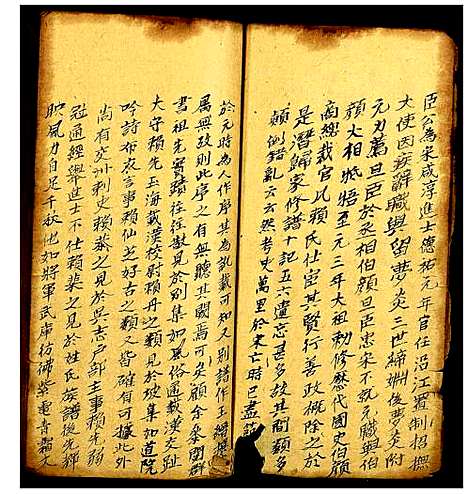 臣公為宋咸淳進士德祐元年官任沿江置制招撫
大使因疾辭職與留夢炎三世締姻後夢炎附
元力薦旦臣於丞相伯顏旦臣忠宋不就元職與伯
顏大相牴牾至元三年大祖勅修歷代國史伯顏
商總裁官凡賴氏仕宦其賢行善政概除之於
是潛歸家修譜十記五六遺忘甚多故其間頗多
顛倒錯亂云云然考史萬里於宋亡時已盡
於元時為人作序其為訛載可知又別譜作王
屬無玫則此序之有無聽其闕焉可矣顧余參閱群
書祖先實蹟往往散見於別集如風俗通載漢交趾
大守賴先上海載漢校尉賴丹之類見於坡集如道院
吟詩布衣言事賴仙芝好古之類又皆確有可據此外
尚有交州刺史賴恭之見於吳志戶部主事賴先弱
冠通經舉進士不仕賴棐之見於姓氏族譜後先輝
映風力自足千秋他如將軍武庫彷彿紫電青霜文